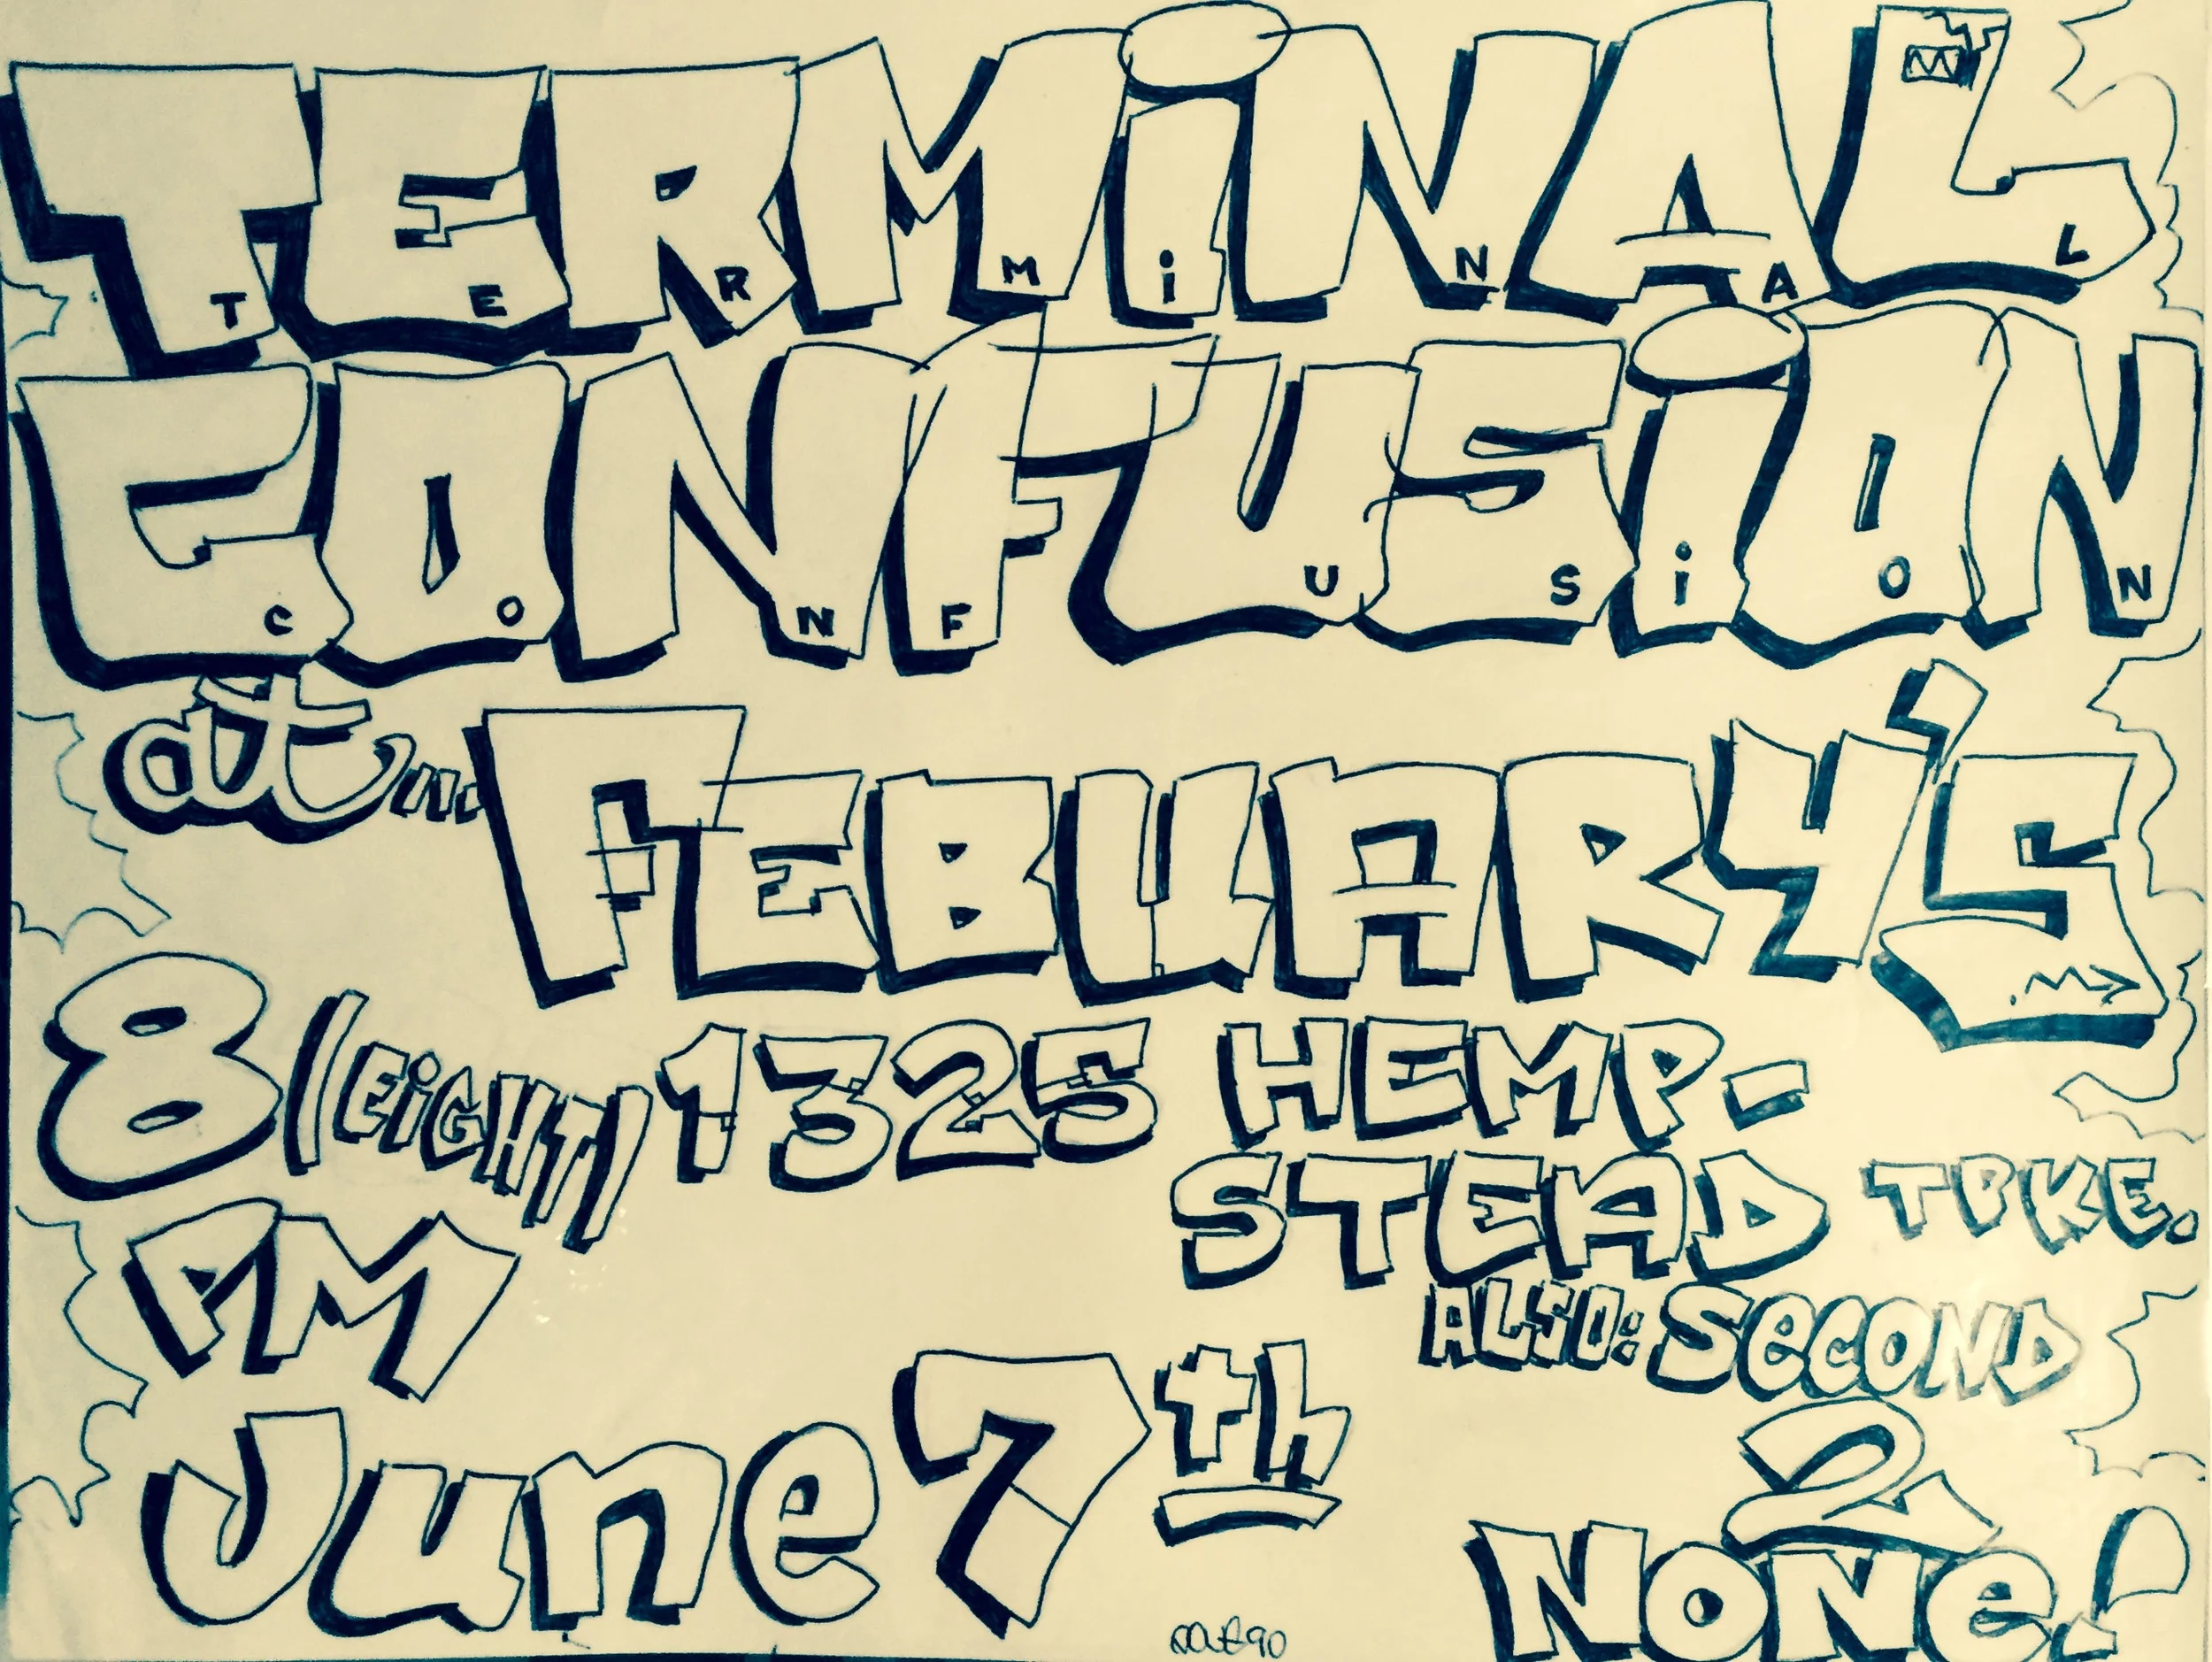 TERMiNAL
T E R M i N A L
CONFUSiON
C O N F U S i O N
at...
FEBUARY'S
8 (EiGHT) 1325 HEMP-
STEAD TPKE.
PM
ALSO: SECOND
2
June 7th
NONe!